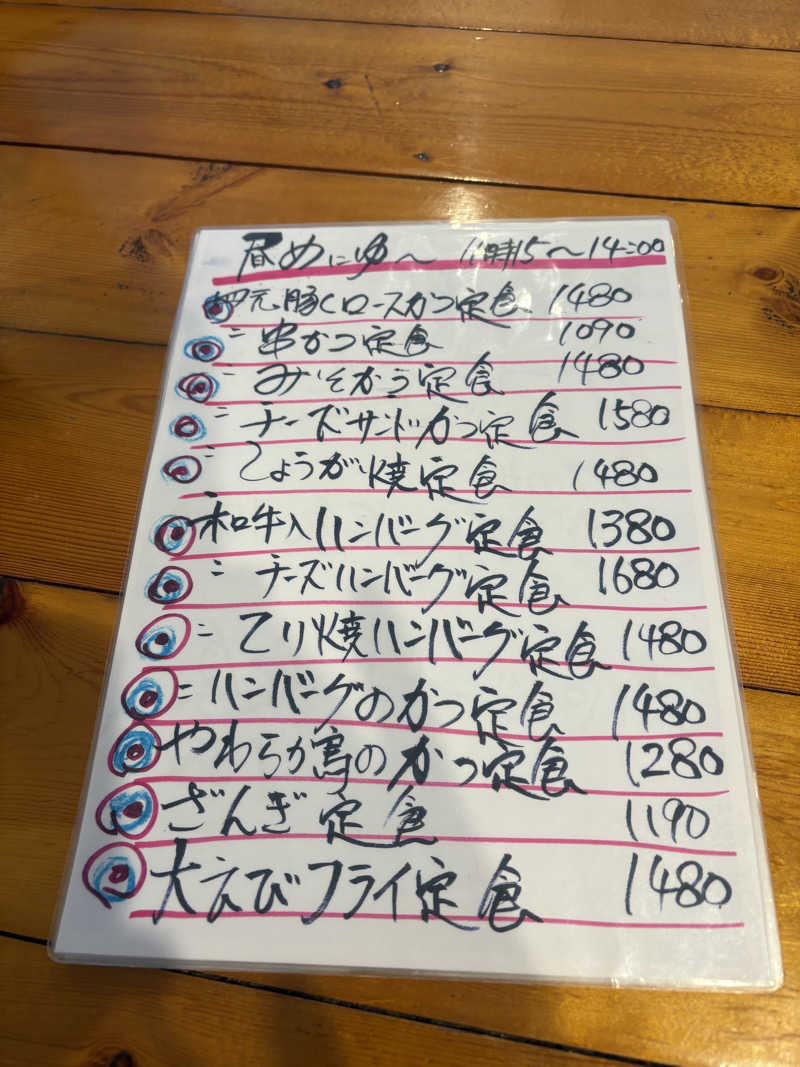 昼めにゅ〜 11時15〜14:00
元豚ロースかつ定食 1480
〃 串かつ定食 1090
〃 みそかつ定食 1480
〃 チーズサンドかつ定食 1580
〃 しょうが焼定食 1480
和牛入ハンバーグ定食 1380
〃 チーズハンバーグ定食 1680
〃 てり焼ハンバーグ定食 1480
〃 ハンバーグのかつ定食 1480
やわらか鳥のかつ定食 1280
ざんぎ定食 1190
大えびフライ定食 1480